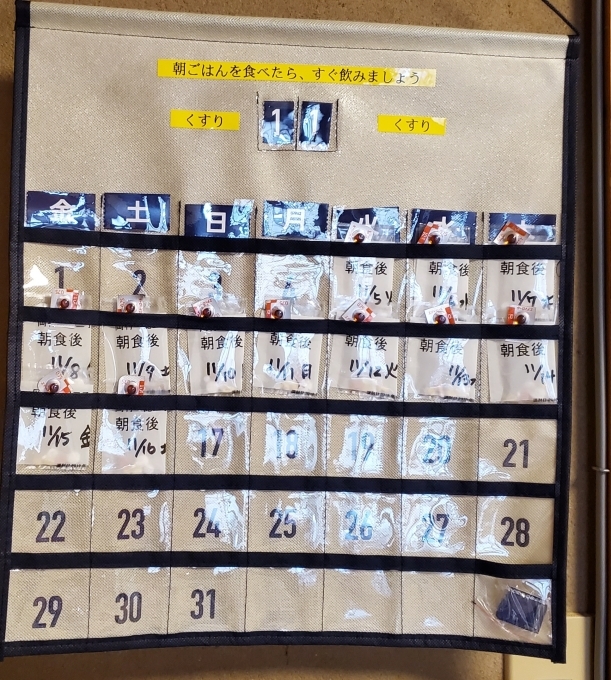 朝ごはんを食べたら、すぐ飲みましょう
くすり 11 くすり
金 土 日 月 火 水 木
1 2 3 4 朝食後 11/5火 朝食後 朝食後 11/7木
朝食後 11/8 朝食後 11/9土 朝食後 11/10 朝食後 11/11日 朝食後 11/12火 朝食後 朝食後 11/14
朝食後 11/15金 朝食後 11/16土 17 18 19 20 21
22 23 24 25 26 27 28
29 30 31